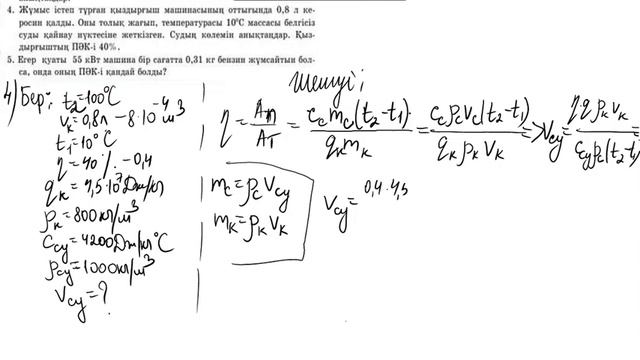 4. Жұмыс істеп тұрған қыздырғыш машинасының оттығында 0,8 л ке-
росин қалды. Оны толық жағып, температурасы 10°С массасы белгісіз
суды қайнау нүктесіне жеткізген. Судың көлемін анықтаңдар. Қыз-
дырғыштың ПӘК-і 40%.
5. Егер қуаты 55 кВт машина бір сағатта 0,31 кг бензин жұмсайтын бол-
са, онда оның ПӘК-і қандай болды?
4) Бер:
t₂=100°C
Vк=0,8л – 8·10⁻⁴м³
t₁=10°C
η=40% – 0,4
qк=4,5·10⁷Дж/кг
ρк=800кг/м³
Cсу=4200Дж/кг°C
ρсу=1000кг/м³
Vсу=?
Шешуі:
η=Aп/Aт=cсmс(t₂-t₁)/qкmк=cсρсVс(t₂-t₁)/qкρкVк=>Vсу=η·qρкVк/cсуρс(t₂-t
mс=ρсVсу
mк=ρкVк
Vсу=0,4·4,5